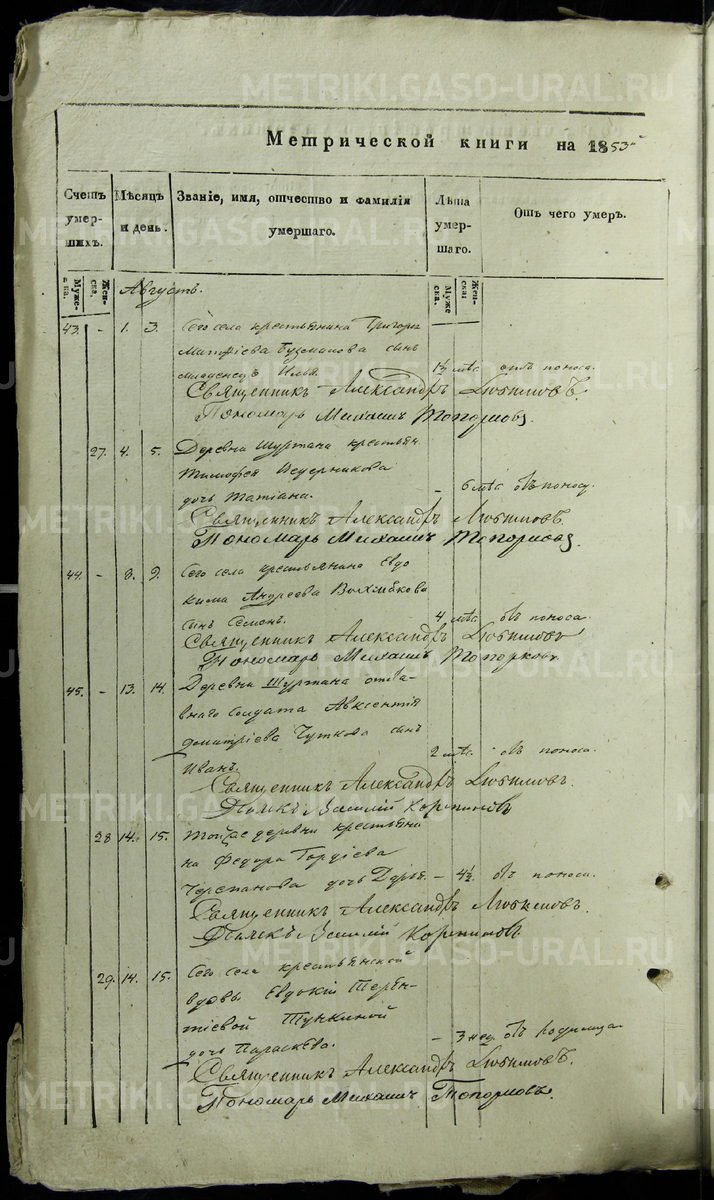 METRIKI.GASO-URAL.RU
Метрической книги на 1853й
Счетъ умершихъ.
Мѣсяцъ и день.
Званіе, имя, отчество и фамилія умершаго.
Лѣта умершаго.
Отъ чего умеръ.
Мужеска.
Женска.
Мужеска
Женска
Августъ.
43. - 1. 3. Сего села крестьянина Григорія
сынъ
младенецъ Илья. 1½ мѣс. отъ поноса.
Священникъ Александръ Любимовъ.
Пономарь Михаилъ Топорковъ
27. 4. 5. Деревни Шуртана крестьян.
Тимофея
дочь Татіана. - 6 мѣс. отъ поносу.
Священникъ Александръ Любимовъ.
Пономарь Михаилъ Топорковъ
44. - 8. 9. Сего села крестьянина Евдо
кима Андреева
сынъ Семонъ. 4 мѣс. отъ поноса.
Священникъ Александръ Любимовъ
Пономарь Михаилъ Топорковъ
45. - 13. 14. Деревни Шуртана отста-
внаго солдата Авксентія
Димитріева сынъ
Иванъ. 2 мѣс. отъ поноса.
Священникъ Александръ Любимовъ.
Василій
28 14. 15. Тойже деревни крестьяни
на Федора Гордіева
Черепанова дочь Дарья. - 4½ отъ поноса.
Священникъ Александръ Любимовъ.
Василій
29. 14. 15. Сего села крестьянской
вдовы Евдокіи Терен-
тіевой
дочь Параскева. - 3 нед. отъ родимца.
Священникъ Александръ Любимовъ.
Пономарь Михаилъ Топорковъ.